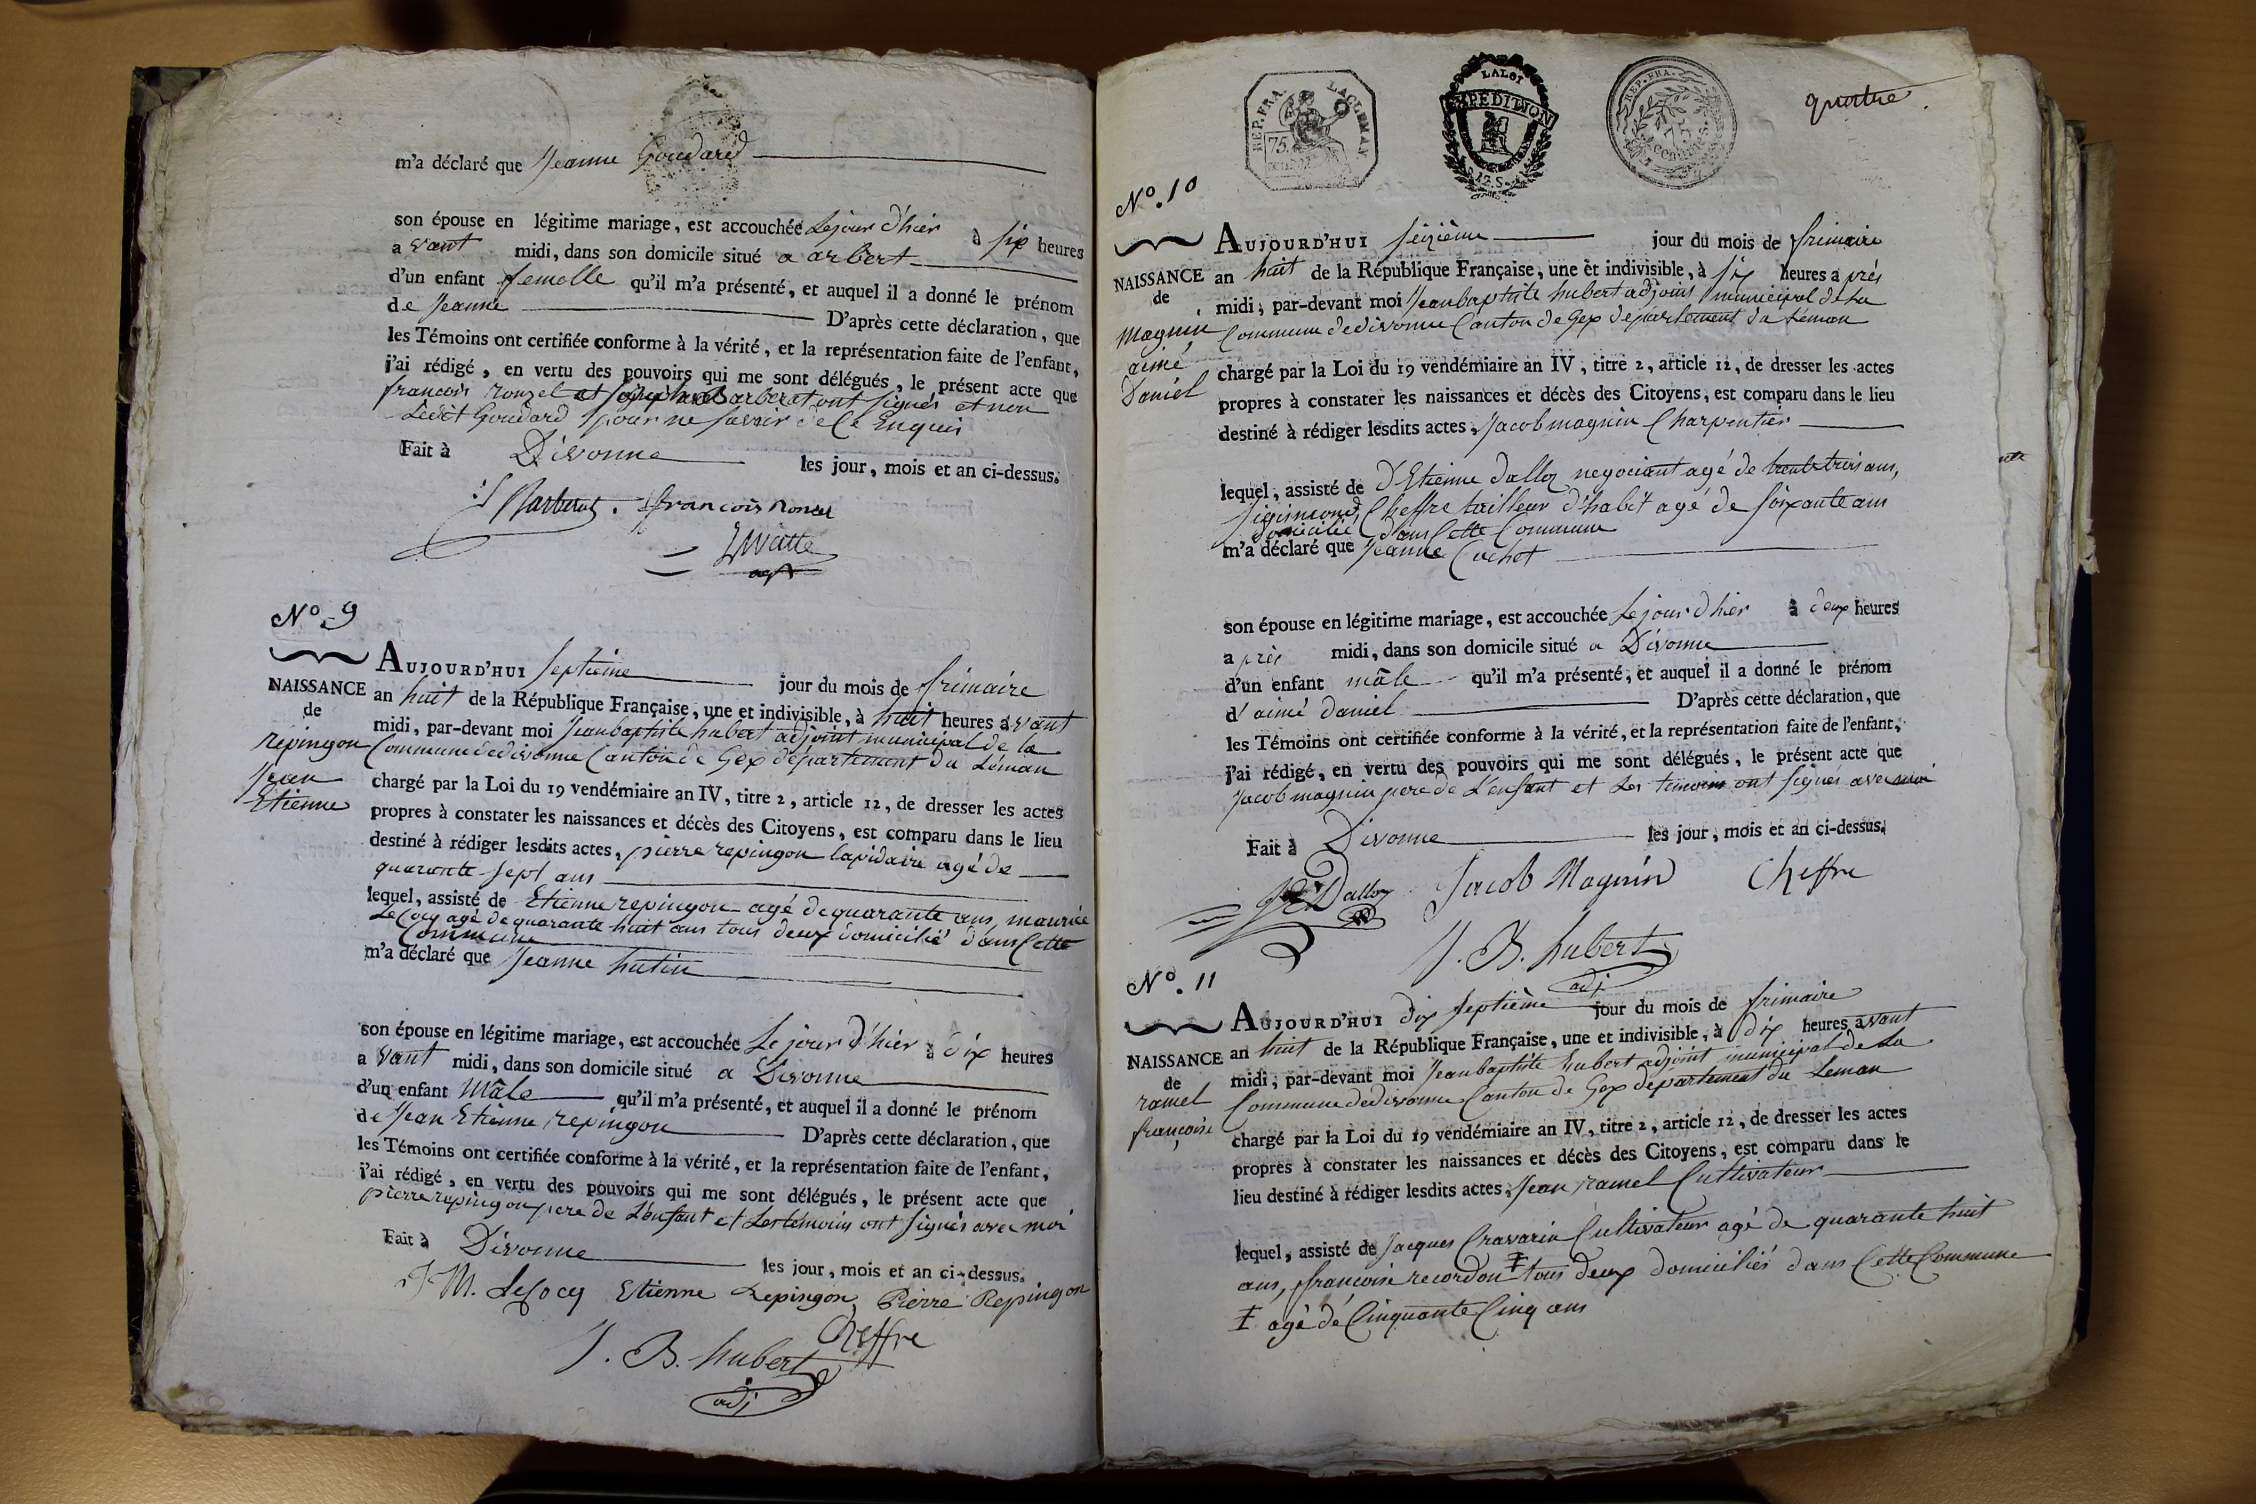 m'a déclaré que Jeanne Goudard
son épouse en légitime mariage, est accouchée Le jour d'hier à six heures
avant midi, dans son domicile situé a arbert
d'un enfant femelle qu'il m'a présenté, et auquel il a donné le prénom
de Jeanne D'après cette déclaration, que
les Témoins ont certifiée conforme à la vérité, et la représentation faite de l'enfant,
j'ai rédigé, en vertu des pouvoirs qui me sont délégués, le présent acte que
francois ronzel et Joseph Barberat ont signés et non
Ledit Goudard pour ne savoir de Ce enquis
Fait à Divonne les jour, mois et an ci-dessus.
francois Roncel
N° 9
AUJOURD'HUI septième jour du mois de frimaire
NAISSANCE
de
repingon
Jean
Etienne
an huit de la République Française, une et indivisible, à huit heures avant
midi, par-devant moi Jean baptiste hubert adjoint municipal de la
Commune de divonne Canton de Gex département du Léman
chargé par la Loi du 19 vendémiaire an IV, titre 2, article 12, de dresser les actes
propres à constater les naissances et décès des Citoyens, est comparu dans le lieu
destiné à rédiger lesdits actes, pierre repingon lapidaire agé de
quarante sept ans
lequel, assisté de Etienne repingon agé de quarante ans, maurice
Le Cocq agé de quarante huit ans tous deux domicilié dans Cette
Commune
m'a déclaré que Jeanne hutin
son épouse en légitime mariage, est accouchée Le jour d'hier à dix heures
avant midi, dans son domicile situé a Divonne
d'un enfant mâle qu'il m'a présenté, et auquel il a donné le prénom
de Jean Etienne repingon D'après cette déclaration, que
les Témoins ont certifiée conforme à la vérité, et la représentation faite de l'enfant,
j'ai rédigé, en vertu des pouvoirs qui me sont délégués, le présent acte que
pierre repingon pere de L'enfant et Les témoins ont signés avec moi
Fait à Divonne les jour, mois et an ci-dessus.
J. M. LeCocq Etienne Repingon Pierre Repingon
Cheffre
J. B. hubert
adj
REP. FRA.
75.
LA LOI
EXPEDITION
12. S.
REP. FRA.
75
centimes
quatre
N°. 10
AUJOURD'HUI seizième jour du mois de frimaire
NAISSANCE
de
magnin
aimé
Daniel
an huit de la République Française, une et indivisible, à six heures après
midi, par-devant moi Jean baptiste hubert adjoint municipal de La
Commune de divonne Canton de Gex departement du Léman
chargé par la Loi du 19 vendémiaire an IV, titre 2, article 12, de dresser les actes
propres à constater les naissances et décès des Citoyens, est comparu dans le lieu
destiné à rédiger lesdits actes, Jacob magnin Charpentier
lequel, assisté de D'Etienne dalloz negociant agé de trente trois ans,
Sigismond Cheffre tailleur d'habit agé de soixante ans
domicilié dans Cette Commune
m'a déclaré que Jeanne Cochet
son épouse en légitime mariage, est accouchée Le jour d'hier à deux heures
après midi, dans son domicile situé a Divonne
d'un enfant mâle qu'il m'a présenté, et auquel il a donné le prénom
d'aimé daniel D'après cette déclaration, que
les Témoins ont certifiée conforme à la vérité, et la représentation faite de l'enfant,
j'ai rédigé, en vertu des pouvoirs qui me sont délégués, le présent acte que
Jacob magnin pere de L'enfant et Les temoins ont signés avec moi
Fait à Divonne les jour, mois et an ci-dessus.
Dalloz Jacob Magnin Cheffre
J. B. hubert
adj
N°. 11
AUJOURD'HUI dix septième jour du mois de frimaire
NAISSANCE
de
ramel
françoise
an huit de la République Française, une et indivisible, à dix heures avant
midi, par-devant moi Jean baptiste hubert adjoint municipal de La
Commune de divonne Canton de Gex departement du Léman
chargé par la Loi du 19 vendémiaire an IV, titre 2, article 12, de dresser les actes
propres à constater les naissances et décès des Citoyens, est comparu dans le
lieu destiné à rédiger lesdits actes, Jean ramel Cultivateur
lequel, assisté de Jacques Cravarin Cultivateur agé de quarante huit
ans, françoise recordon ‡ tous deux domiciliés dans Cette Commune
‡ agé de Cinquante Cinq ans